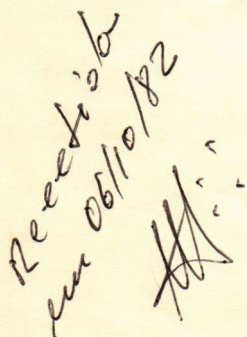 Recebido
em 06/10/82